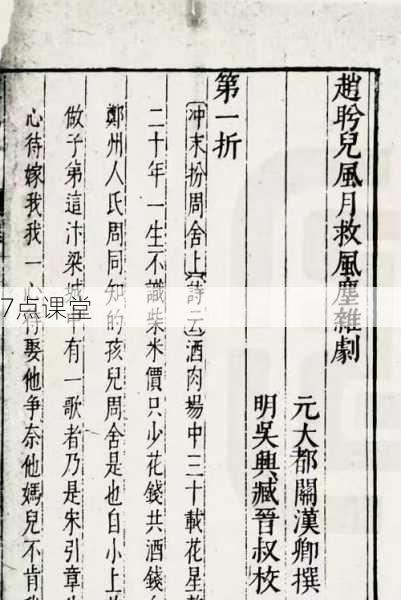 趙盼兒風月救風塵雜劇
元大都關漢卿撰
明吳興臧晉叔校
第一折
冲末扮周舍上詩云酒肉場中三十載花星
二十年一生不識柴米價只少花錢共酒錢
鄭州人氏周同知的孩兒周舍是也自小上
做子弟這汴梁城中有一歌者乃是宋引章
心待嫁我我一心待娶他爭奈他媽兒不肯
7点课堂